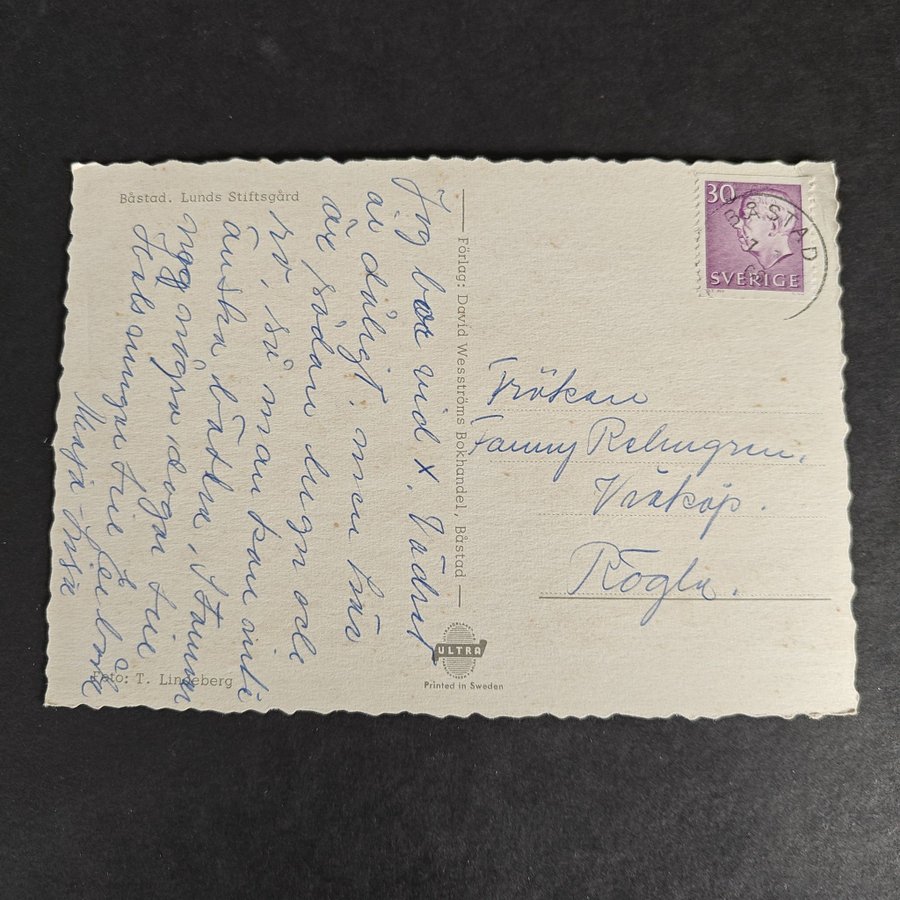 Båstad. Lunds Stiftsgård
Jag bor vid x. Vädret
är dåligt, men här
är sådan lugn och
ro, så man kan inte
önska bättre. Stannar
nog några dagar till
Hälsningar till
Maja-Lisa
Foto: T. Lindeberg
Förlag: David Wesströms Bokhandel, Båstad
ULTRA
Printed in Sweden
30
SVERIGE
BÅSTAD
Fröken
Fanny
Vräköp.
Rögla.